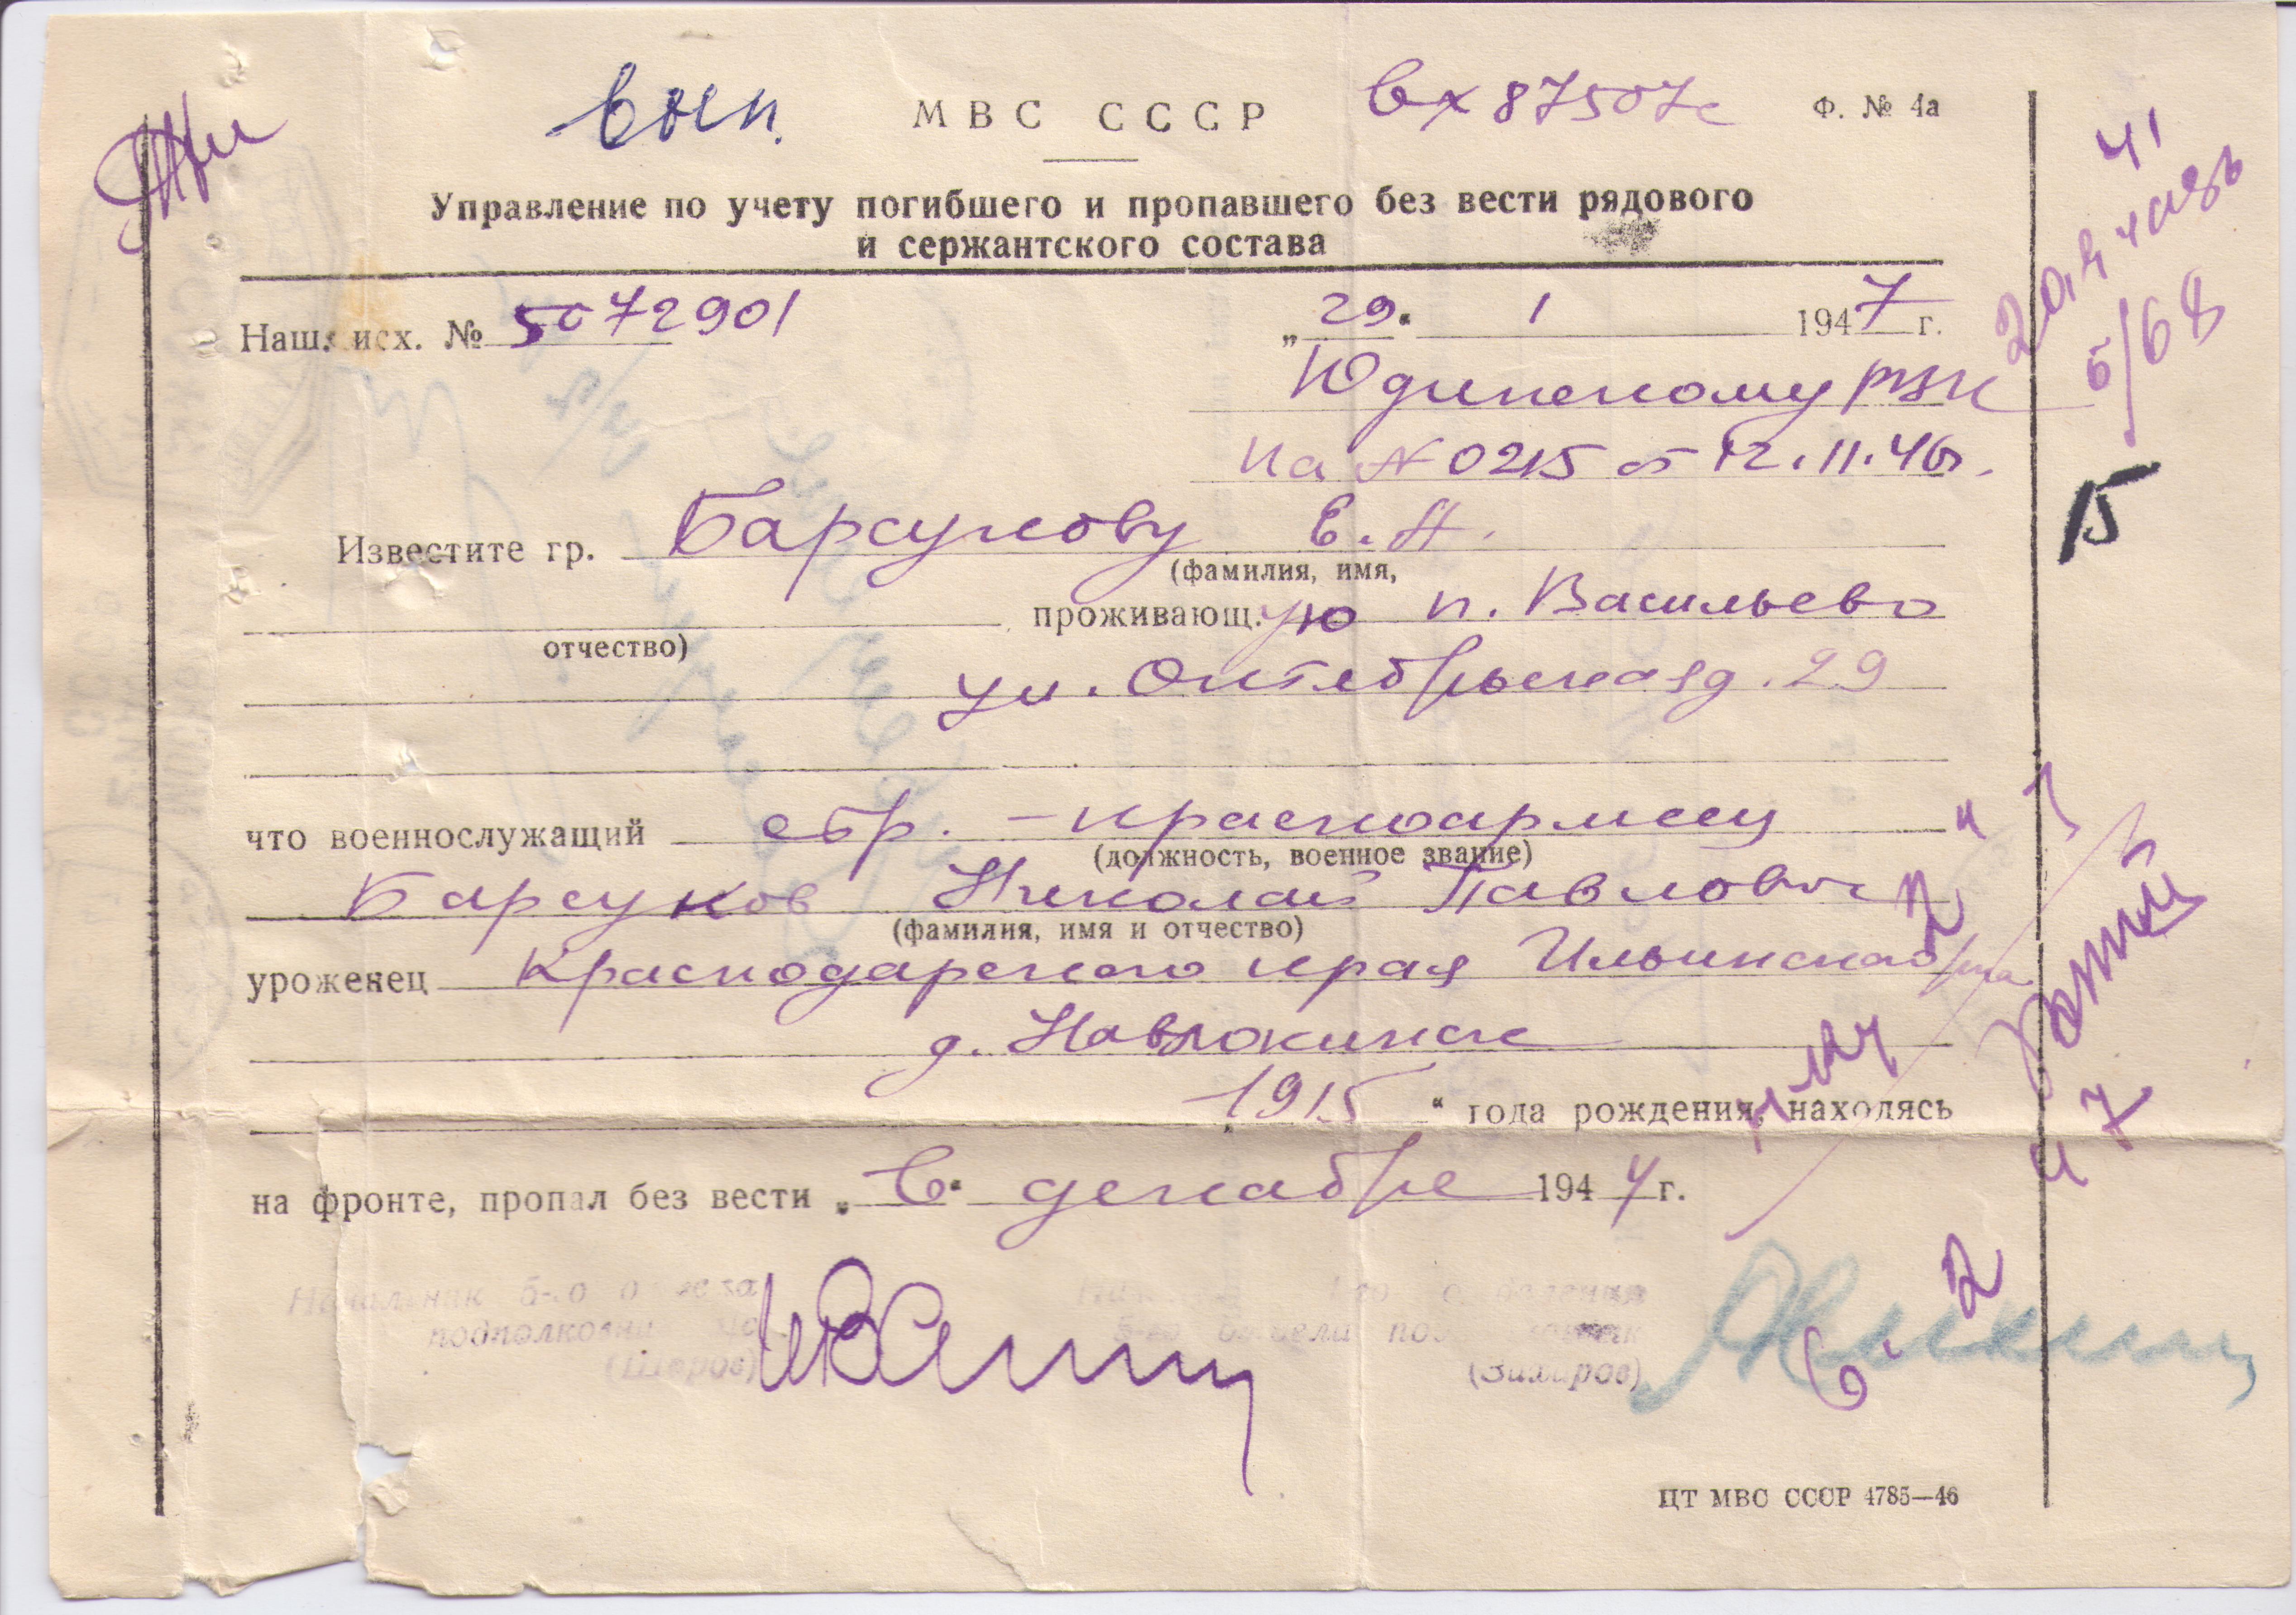 вып. МВС СССР Вх 87507с Ф. № 4а
Управление по учету погибшего и пропавшего без вести рядового
и сержантского состава
Наш исх. № 5072901 „29“ 1 1947 г.
Юдинскому РВК
41
2ой часть
5/68
на № 0215 от 12.11.46г.
15
Известите гр. Барсукову Е. А.
(фамилия, имя,
проживающ.ую п. Васильево
отчество)
ул. Октябрьская д. 29
что военнослужащий стр. – красноармеец
(должность, военное звание)
Барсуков Николай Павлович
(фамилия, имя и отчество)
уроженец Краснодарского края Ильинского р-на
д.
1915 “ года рождения, находясь
на фронте, пропал без вести „ в “ декабре 1944 г.
Начальник 5-го отдела
подполковник
(Шаров)
отделения
5-го отдела
ЦТ МВС СССР 4785—46